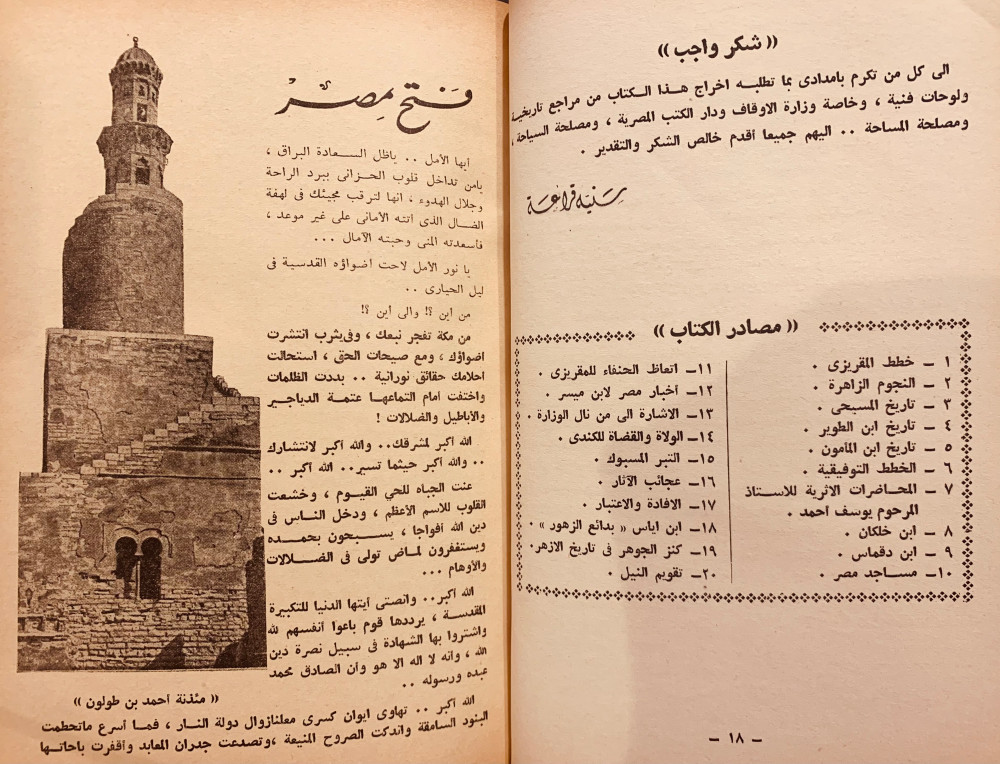 « شكر واجب »
الى كل من تكرم بامدادى بما تطلبه اخراج هذا الكتاب من مراجع تاريخية
ولوحات فنية ، وخاصة وزارة الاوقاف ودار الكتب المصرية ، ومصلحة السياحة ،
ومصلحة المساحة .. اليهم جميعا أقدم خالص الشكر والتقدير .
سنية قراعة
« مصادر الكتاب »
١ – خطط المقريزى .
٢ – النجوم الزاهرة .
٣ – تاريخ المسبحى .
٤ – تاريخ ابن الطوير .
٥ – تاريخ ابن المأمون .
٦ – الخطط التوفيقية .
٧ – المحاضرات الاثرية للاستاذ
المرحوم يوسف احمد .
٨ – ابن خلكان .
٩ – ابن دقماس .
١٠– مساجد مصر .
١١– اتعاظ الحنفاء للمقريزى .
١٢– أخبار مصر لابن ميسر .
١٣– الاشارة الى من نال الوزارة .
١٤– الولاة والقضاة للكندى .
١٥– التبر المسبوك .
١٦– عجائب الآثار .
١٧– الافادة والاعتبار .
١٨– ابن اياس « بدائع الزهور » .
١٩– كنز الجوهر فى تاريخ الازهر .
٢٠– تقويم النيل .
– ١٨ –
فتح مصر
أيها الأمل .. ياظل السعادة البراق ،
يامن تداخل قلوب الحزانى ببرد الراحة
وجلال الهدوء ، انها لترقب مجيئك فى لهفة
الضال الذى اتته الأمانى على غير موعد ،
فأسعدته المنى وحبته الآمال ...
يا نور الأمل لاحت اضواؤه القدسية فى
ليل الحيارى ..
من اين ؟! والى أين ؟!
من مكة تفجر نبعك ، وفى يثرب انتشرت
اضواؤك ، ومع صيحات الحق ، استحالت
احلامك حقائق نورانية .. بددت الظلمات
واختفت امام التماعها عتمة الدياجير
والأباطيل والضلالات !
الله اكبر لمشرقك.. والله أكبر لانتشارك
.. والله أكبر حيثما تسير.. الله أكبر ..
عنت الجباه للحي القيوم ، وخشعت
القلوب للاسم الأعظم ، ودخل الناس فى
دين الله أفواجا ، يسبحون بحمده
ويستغفرون لماض تولى فى الضلالات
والأوهام ...
الله اكبر.. وانصتى أيتها الدنيا للتكبيرة
المقدسة ، يرددها قوم باعوا أنفسهم لله
واشتروا بها الشهادة فى سبيل نصرة دين
الله ، وانه لا اله الا هو وان الصادق محمد
عبده ورسوله ..
الله اكبر .. تهاوى ايوان كسرى معلنازوال دولة النار ، فما أسرع ماتحطمت
البنود السامقة واندكت الصروح المنيعة ،وتصدعت جدران المعابد وأقفرت باحاتها
« مئذنة أحمد بن طولون »